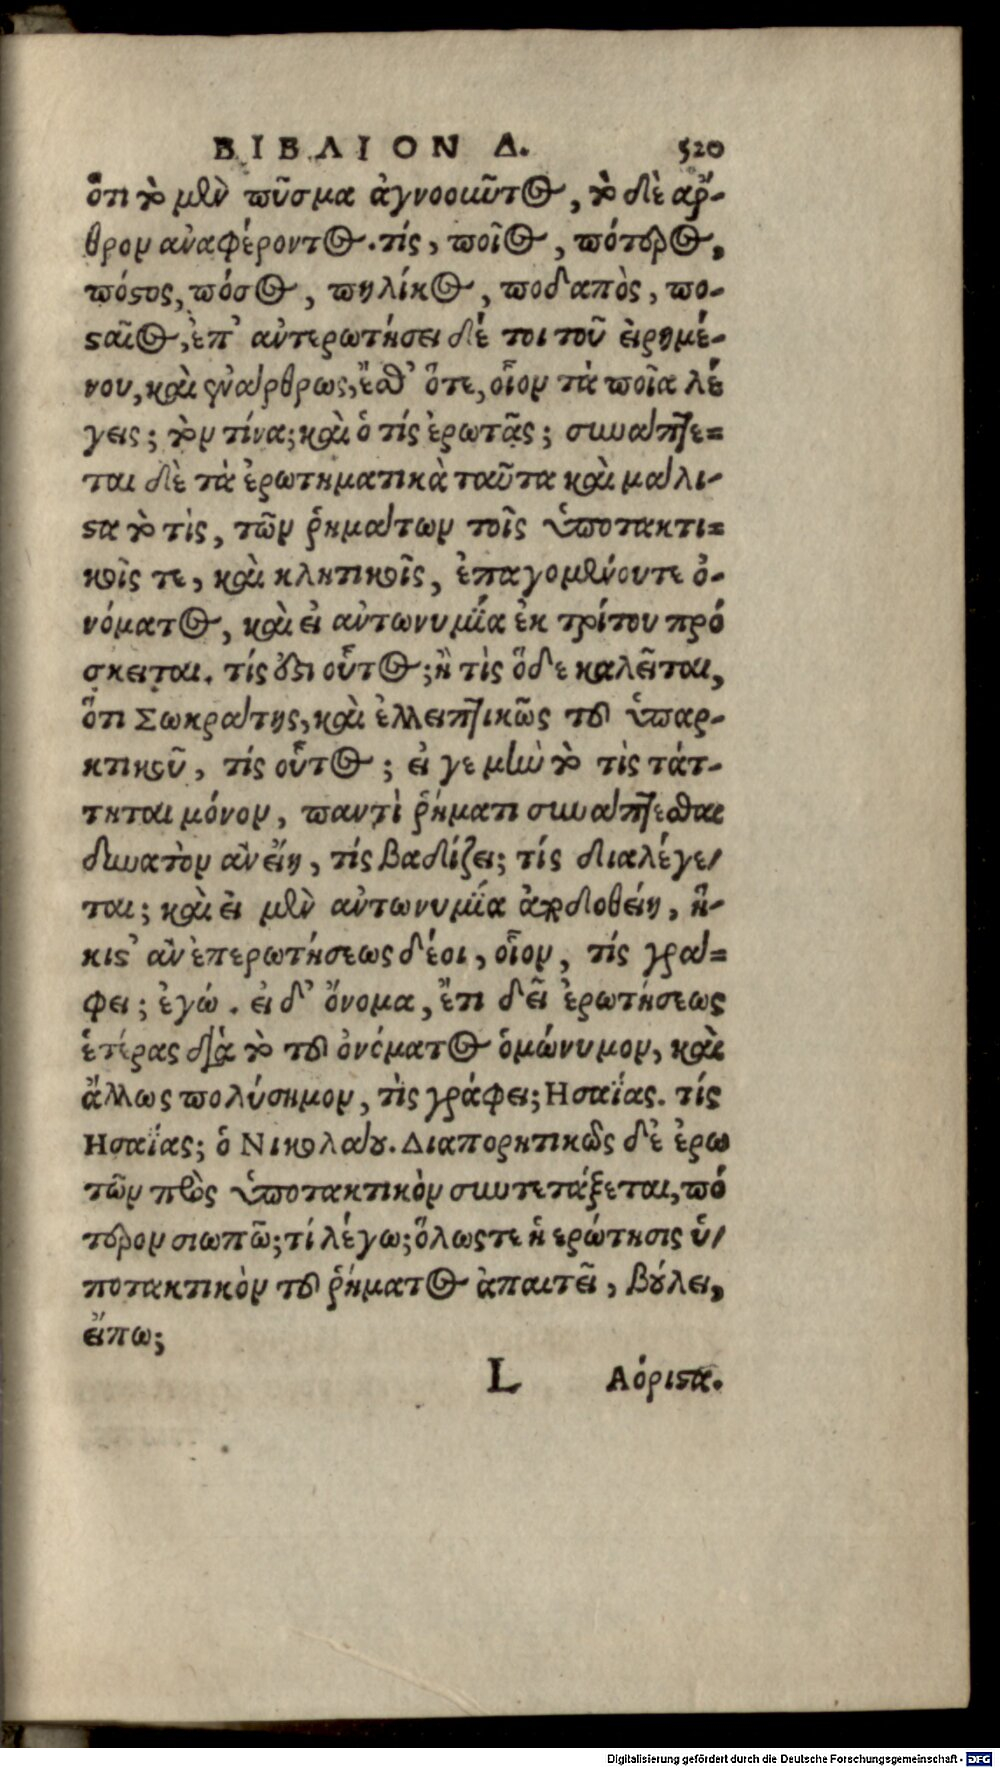 ΒΙΒΛΙΟΝ Δ. 520
ὅτι τὸ μὲν πῦσμα ἀγνοοῦντος, τὸ δὲ ἄρ-
θρον ἀναφέροντος. τίς, ποῖος, πότερος,
πόστος, πόσος, πηλίκος, ποδαπὸς, πο-
σαῖος, ἐπ' ἀντερωτήσει δέ τοι τοῦ εἰρημέ-
νου, καὶ ἐνάρθρως, ἔσθ' ὅτε, οἷον τὰ ποῖα λέ
γεις; τὸν τίνα; καὶ ὁ τίς ἐρωτᾷς; συνάπτε=
ται δὲ τὰ ἐρωτηματικὰ ταῦτα καὶ μάλι-
στα τὸ τὶς, τῶν ῥημάτων τοῖς ὑποτακτι=
κοῖς τε, καὶ κλητικοῖς, ἐπαγομένου τε ὀ-
νόματος, καὶ εἰ ἀντωνυμία ἐκ τρίτου πρό
σκειται. τίς ἐστι οὗτος; ἢ τὶς ὅδε καλεῖται,
ὅτι Σωκράτης, καὶ ἐλλειπτικῶς τοῦ ὑπαρ-
κτικοῦ, τίς οὗτος; εἰ γε μὴν τὸ τὶς τάτ-
τηται μόνον, παντὶ ῥήματι συνάπτεσθαι
δυνατὸν ἂν εἴη, τίς βαδίζει; τίς διαλέγε/
ται; καὶ εἰ μὲν ἀντωνυμία ἀποδοθείη, ἥ-
κιστ' ἂν ἐπερωτήσεως δέοι, οἷον, τίς γρά=
φει; ἐγώ. εἰ δ' ὄνομα, ἔτι δεῖ ἐρωτήσεως
ἑτέρας διὰ τὸ τοῦ ὀνόματος ὁμώνυμον, καὶ
ἄλλως πολύσημον, τὶς γράφει; Ησαΐας. τίς
Ησαΐας; ὁ Νικολάου. Διαπορητικῶς δὲ ἐρω
τῶν πρὸς ὑποτακτικὸν συντετάξεται, πό
τερον σιωπῶ; τί λέγω; ὅλως τε ἡ ερώτησις ὑ/
ποτακτικὸν τοῦ ῥήματος ἀπαιτεῖ, βούλει,
εἴπω;
L Αόριστα.
Digitalisierung gefördert durch die Deutsche Forschungsgemeinschaft - DFG